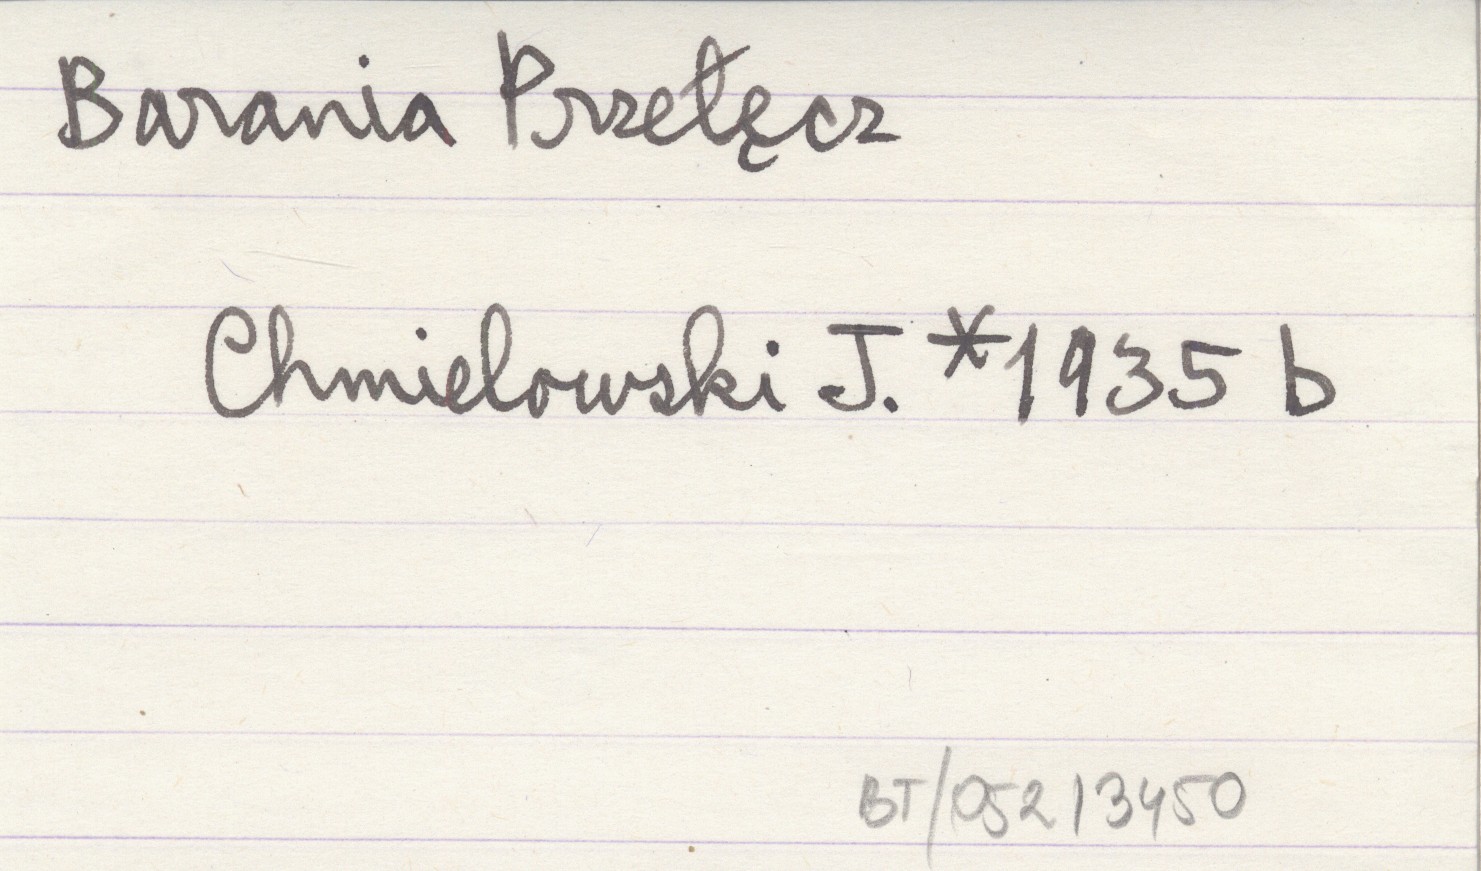 Barania Przełęcz
Chmielowski J. *1935 b
BT/05213450